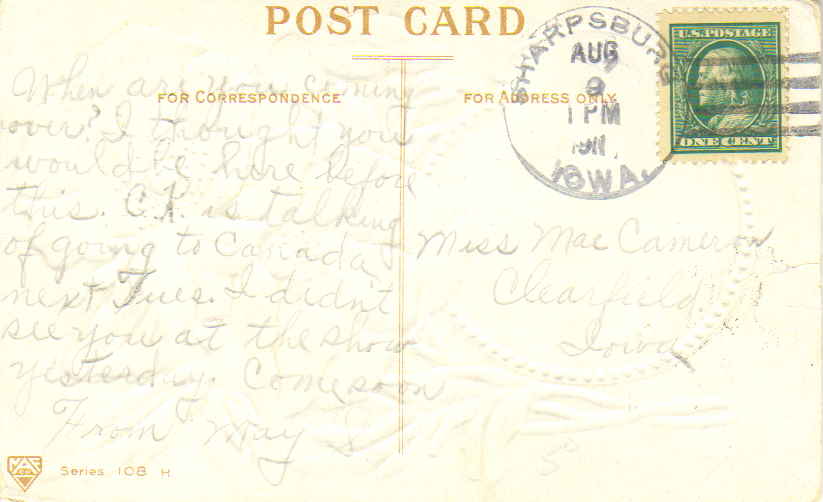 POST CARD
FOR CORRESPONDENCE
When are you coming
over? I thought you
would be here before
this. C.K. is talking
of going to Canada
next Tues. I didn't
see you at the show
yesterday. Come soon
From May S
FOR ADDRESS ONLY
SHARPSBURG
AUG
9
1 PM
1911
IOWA.
U.S. POSTAGE
ONE CENT
Miss Mae Cameron
Clearfield
Iowa
Series 108 H